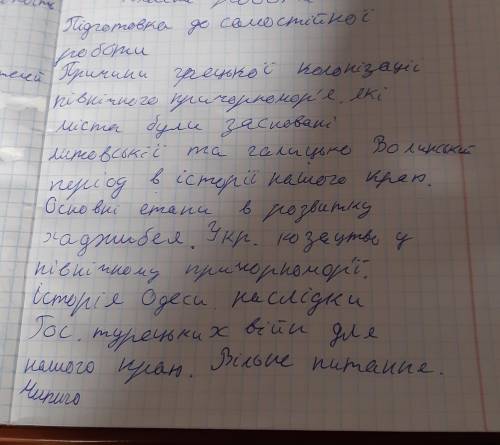 Підготовка до самостійної
роботи
Причини грецької колонізації
північного причорномор'я, які
міста були засновані
литовській та галицько Волинський
період в історії нашого краю.
Основні етапи в розвитку
хаджибея. Укр. козацтво у
північному причорноморї.
історія Одеси. наслідки
Рос. турецьких війн для
нашого краю. Вільне питання.